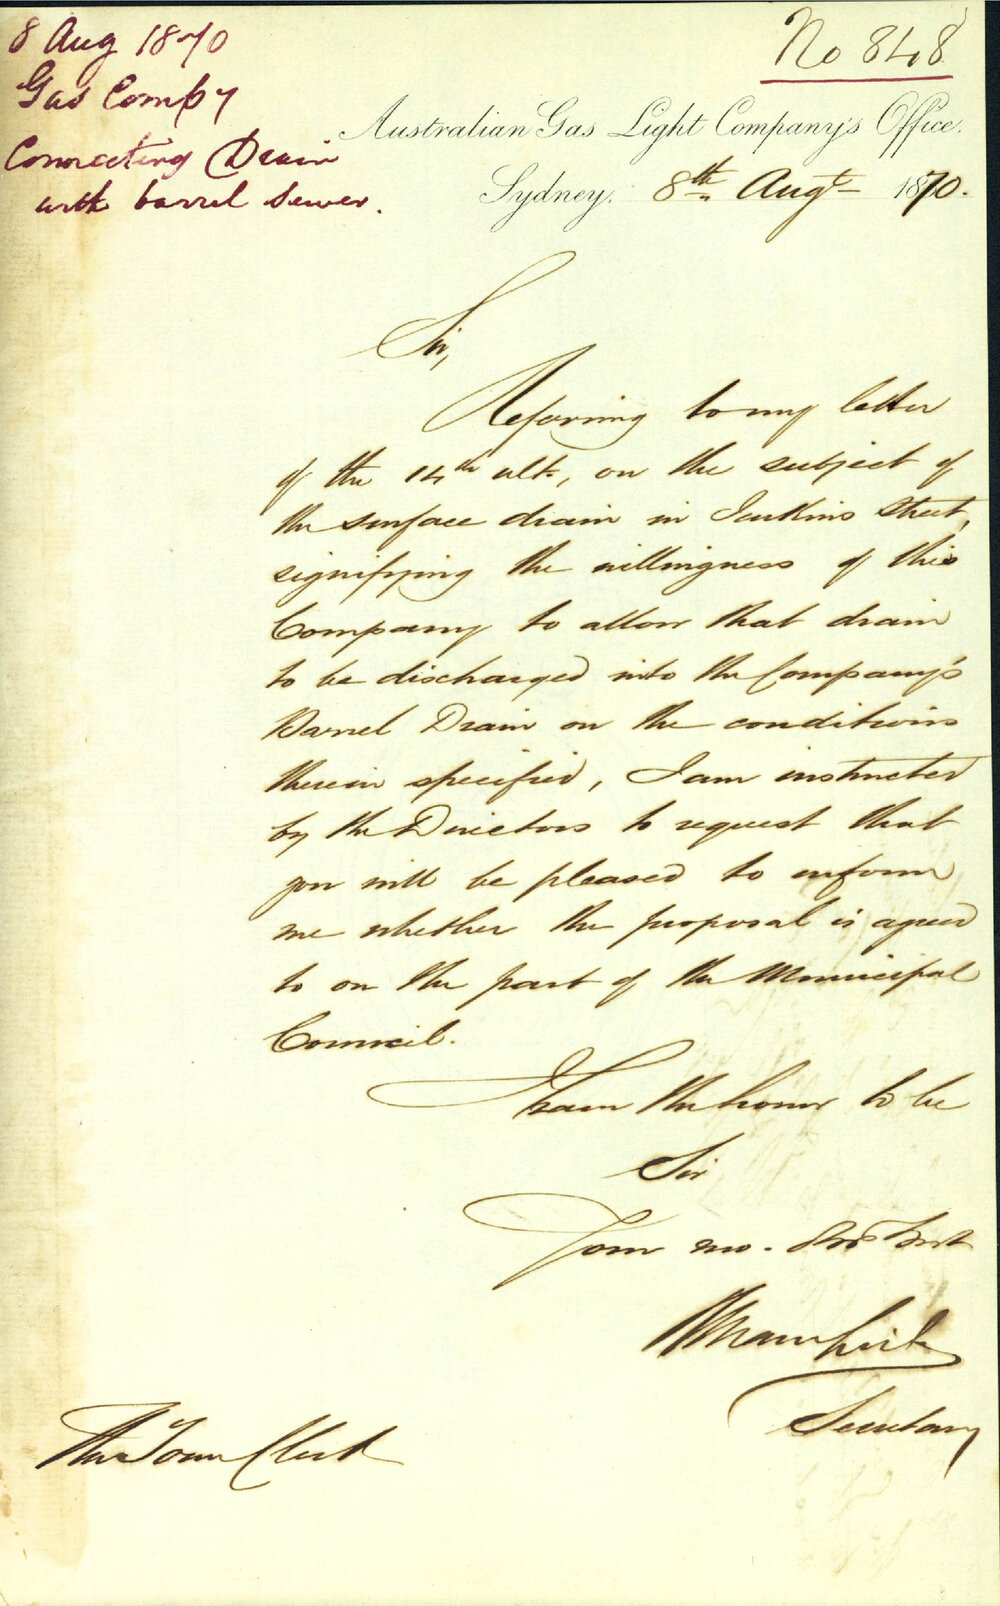 8 Aug 1870
Gas Compy
Connecting Drain
with barrel sewer.
No 848
Australian Gas Light Company's Office.
Sydney, 8th Augt 1870.
Sir,
Referring to my letter
of the 14th ult., on the subject of
the surface drain in Jenkins Street,
signifying the willingness of this
Company to allow that drain
to be discharged into the Company's
Barrel Drain on the conditions
therein specified, I am instructed
by the Directors to request that
you will be pleased to inform
me whether the proposal is agreed
to on the part of the Municipal
Council.
I have the honor to be
Sir
Your mo. Obt Servt
Secretary
The Town Clerk